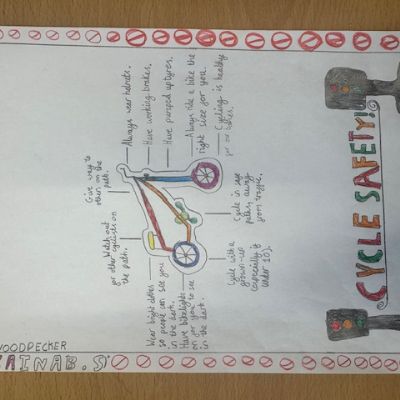 CYCLE SAFETY!
Give way to
others on the
path.
Watch out
for other cyclists on
the path.
Always wear helmets.
Have working brakes.
Have pumped up tyres.
Always ride a bike the
right size for you.
Cycling is healthy
for our
Wear bright clothes
so people can see you
in the dark.
Have bikelights
on for you to see
in the dark.
Cycle in safe
paths, away
from traffic.
Cycle with a
grown-up
(especially if
under 10).
WOODPECKER
ZAINAB.S